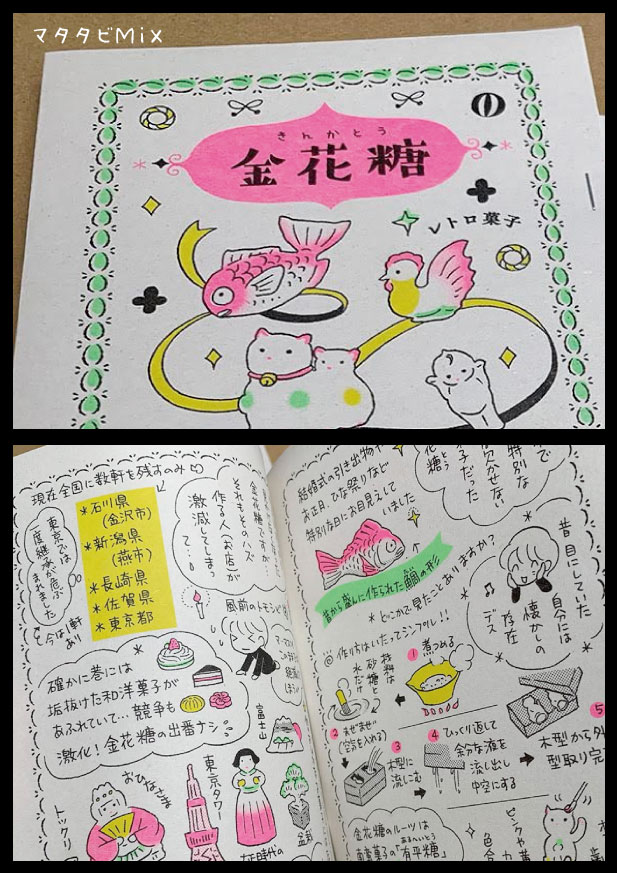 マタタビMix
きんかとう
金花糖
レトロ菓子
現在全国に数軒を残すのみ
*石川県
(金沢市)
*新潟県
(燕市)
*長崎県
*佐賀県
*東京都
東京では
一度継承が危ぶ
まれました
今は1軒
あり
金花糖ですが…
それもそのハズ
作る人・お店が
激減してしまっ
て…
風前のトモシビ
確かに巷には
垢抜けた和洋菓子が
あふれていて…競争も
激化!金花糖の出番ナシ
富士山
おひなさま
東京タワー
トックリ
結婚式の引き出物や
お正月、ひな祭りなど
特別な日にお目見えして
いました
特別な
欠かせない
子だった
金花糖
昔目にしていた
自分には
懐かしの
存在
デス
昔から盛んに作られた鯛の形
*どっかで見たことありますか?
◎作り方はいたってシンプル!!
材料は
砂糖と
水だけ
1 煮つめる
2 まぜまぜ
(空気を入れる)
3 木型に
流しこむ
4 ひっくり返して
余分な液を
流し出し
中空にする
5
木型から外
型取り完
金花糖のルーツは
南蛮菓子の「有平糖」
ピンクや黄
色合